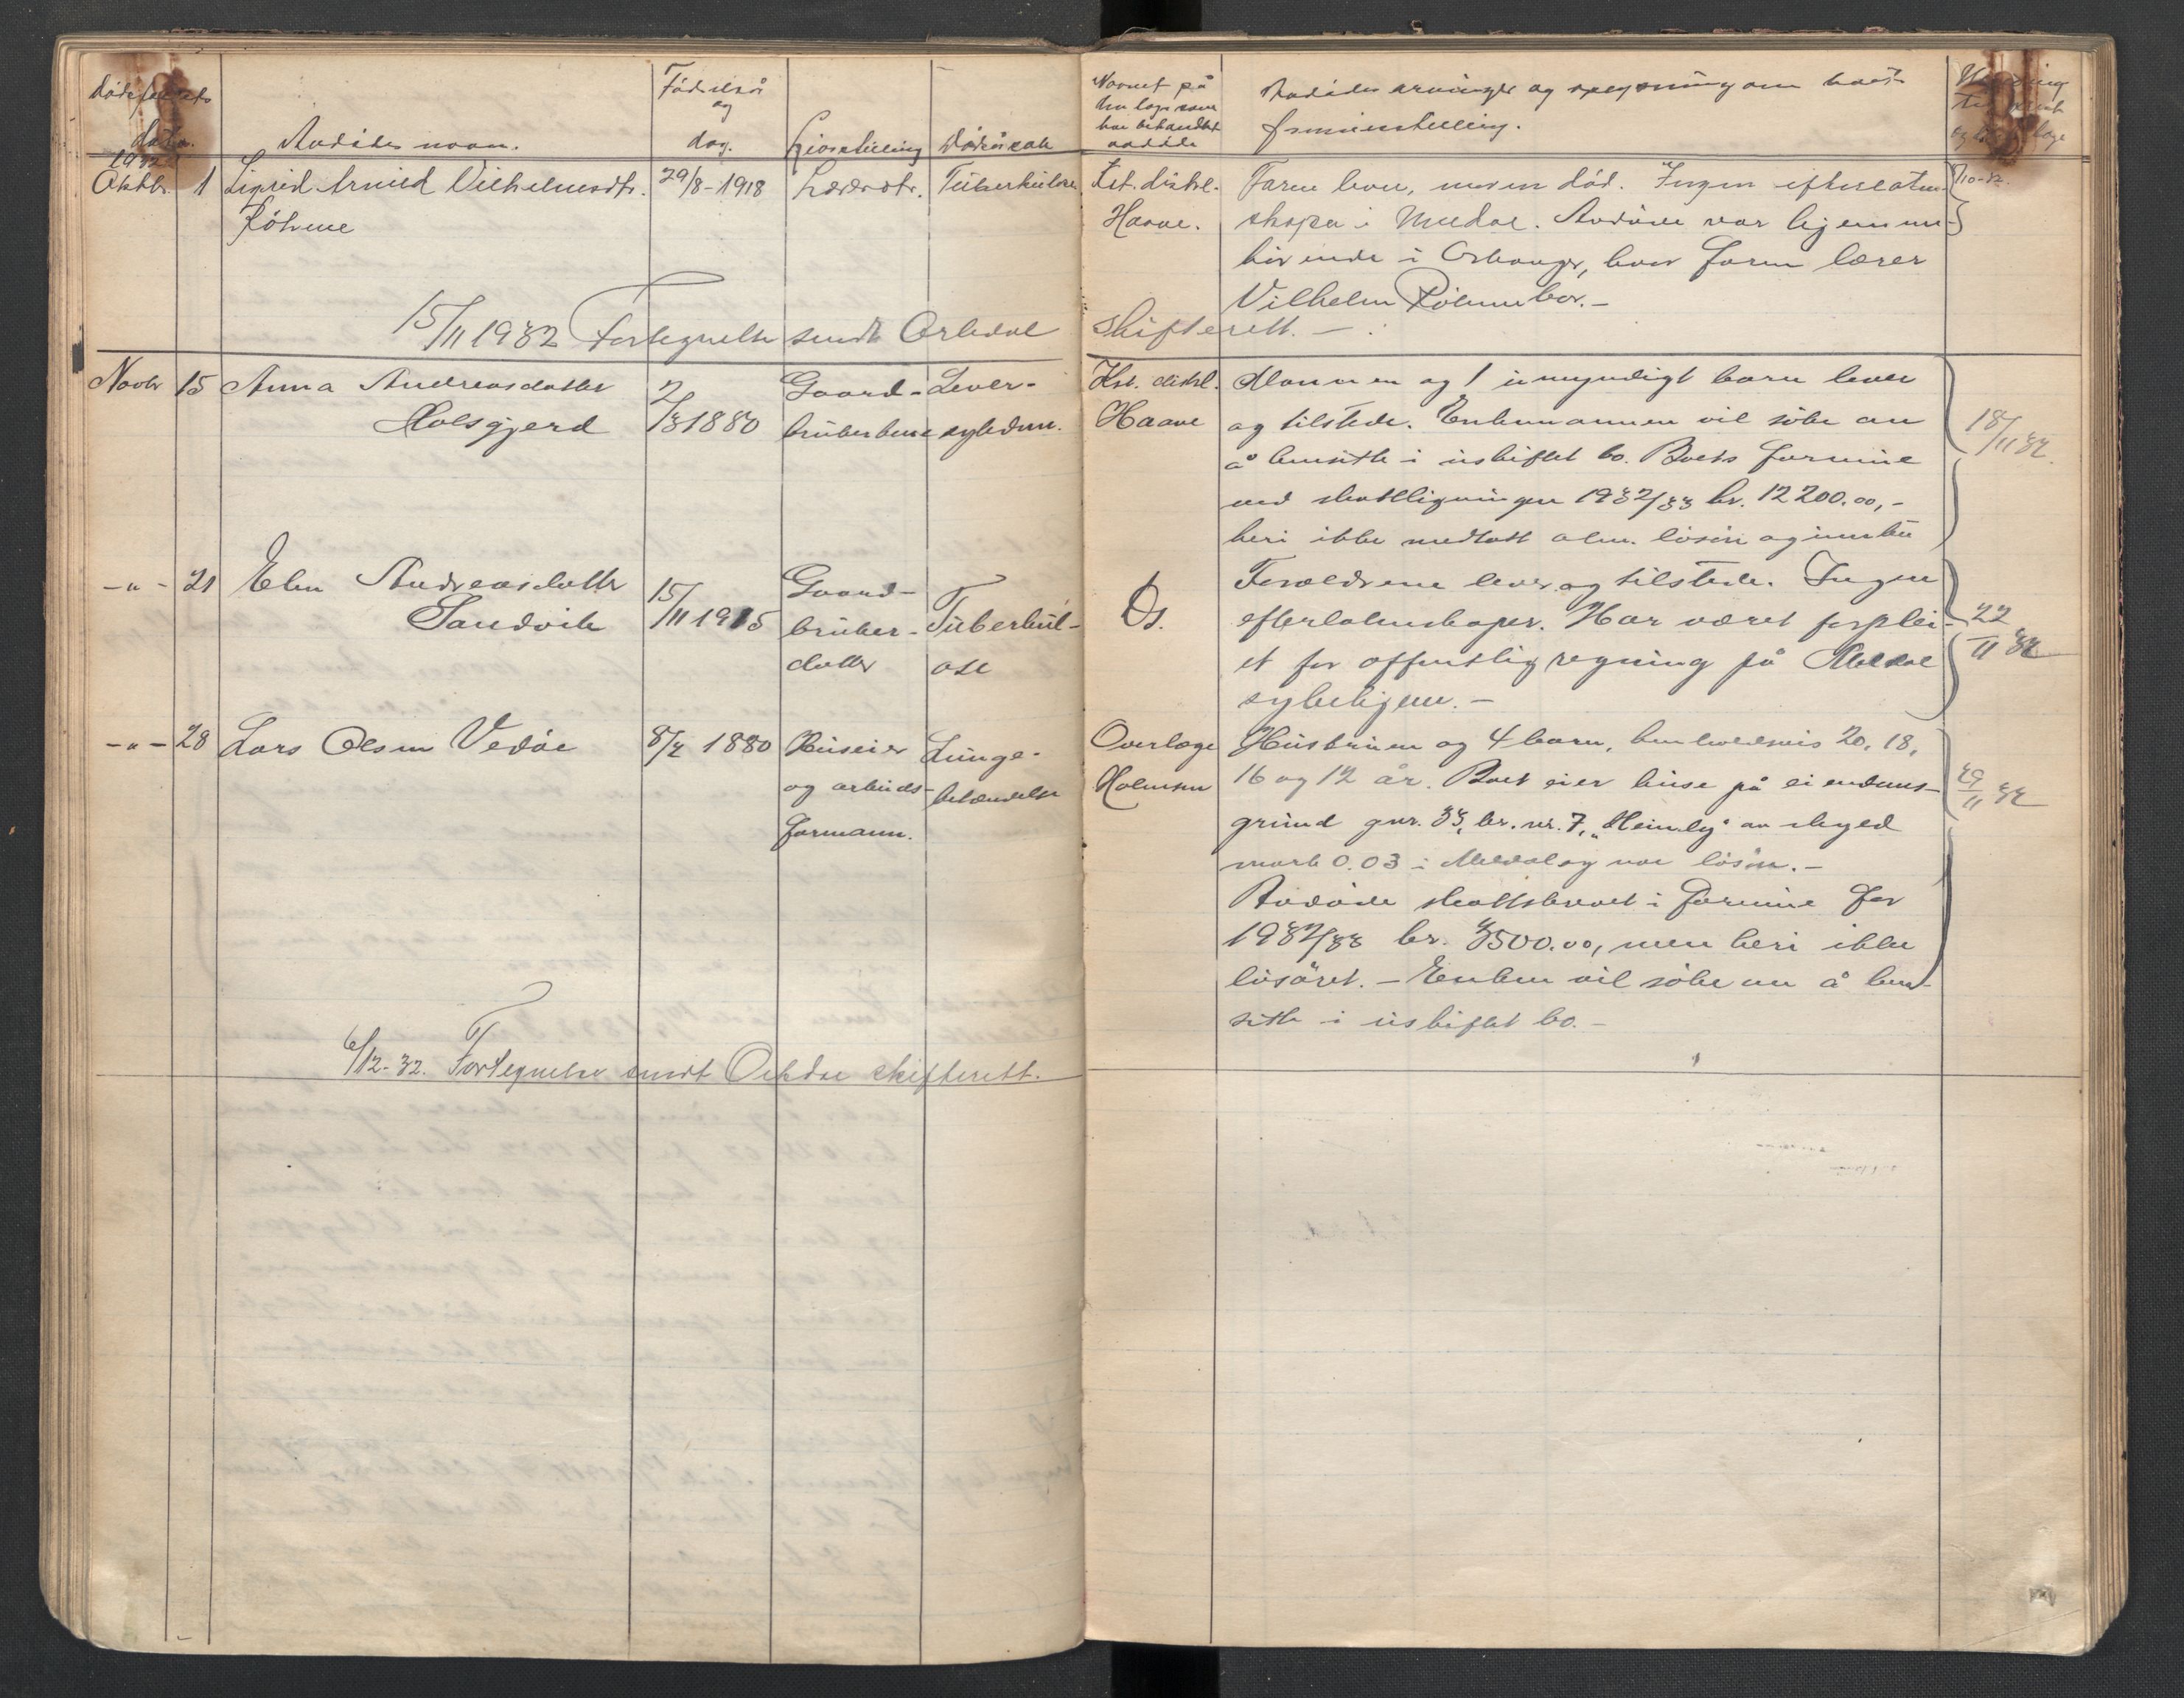 Dødsfallets dato. Avdødes navn. Fødselsår og dag. Livsstilling Dødsårsak
Navnet på den læge som har behandlet avdøde
Avdødes arvinger og opgysning om boets formuestilling.
1932
Oktbr. 1 Sigrid Arnild Vilhelmsdtr. 29/8-1918 Lærerdtr. Tuberkulose Kst. distrl. Faren lever, moren död. Ingen efterlaten-
Röhme Haave. skaper i Meldal. Avdøde var hjemme-
hörende i Orkanger, hvor faren lærer
Vilhelm Röhme bor.-
15/11 1932 Fortegnelse sendt Orkdal skifterett. -
Novbr 15 Anna Andreasdatter 2/3 1880 Gaard- Lever- Kst. distrl. Mannen og 1 umyndigt barn lever
Holsgjerd bruker kone sykdom. Haave og tilstede. Enkemannen vil söke om 18/11 32.
å hensitte i uskiftet bo. Boets formue
ved skatteligningen 1932/33 kr. 12200.00,-
heri ikke medtatt alm. lösöre og innbu
-"- 21 Elen Andreasdatter 15/11 1915 Gaard- Ds. Forældrene lever og tilstede. Ingen
Sandvik bruker- Tuberkul- efterlatenskaper. Har været forplei- 22/11 32
datter ose et for offentlig regning på Meldal
sykehjem. -
-"- 28 Lars Olsen Vedöe 8/2 1880 Huseier Lunge- Overlæge Hustruen og 4 barn, henholdsvis 20, 18,
og arbeids- betændelse Holmsen 16 og 12 år. Boet eier huse på eiendoms- 29/11 32
formann. grund gnr. 33, br. nr. 7, "Heimly" av skyld
mark 0.03 i Meldal og noe lösöre. -
Avdøde skattskrevet i formue for
1932/33 kr. 3500.00, men heri ikke
lösöret. - Enken vil söke om å hen-
sitte i uskiftet bo. -
6/12-32. Fortegnelse sendt Orkdal skifterett.